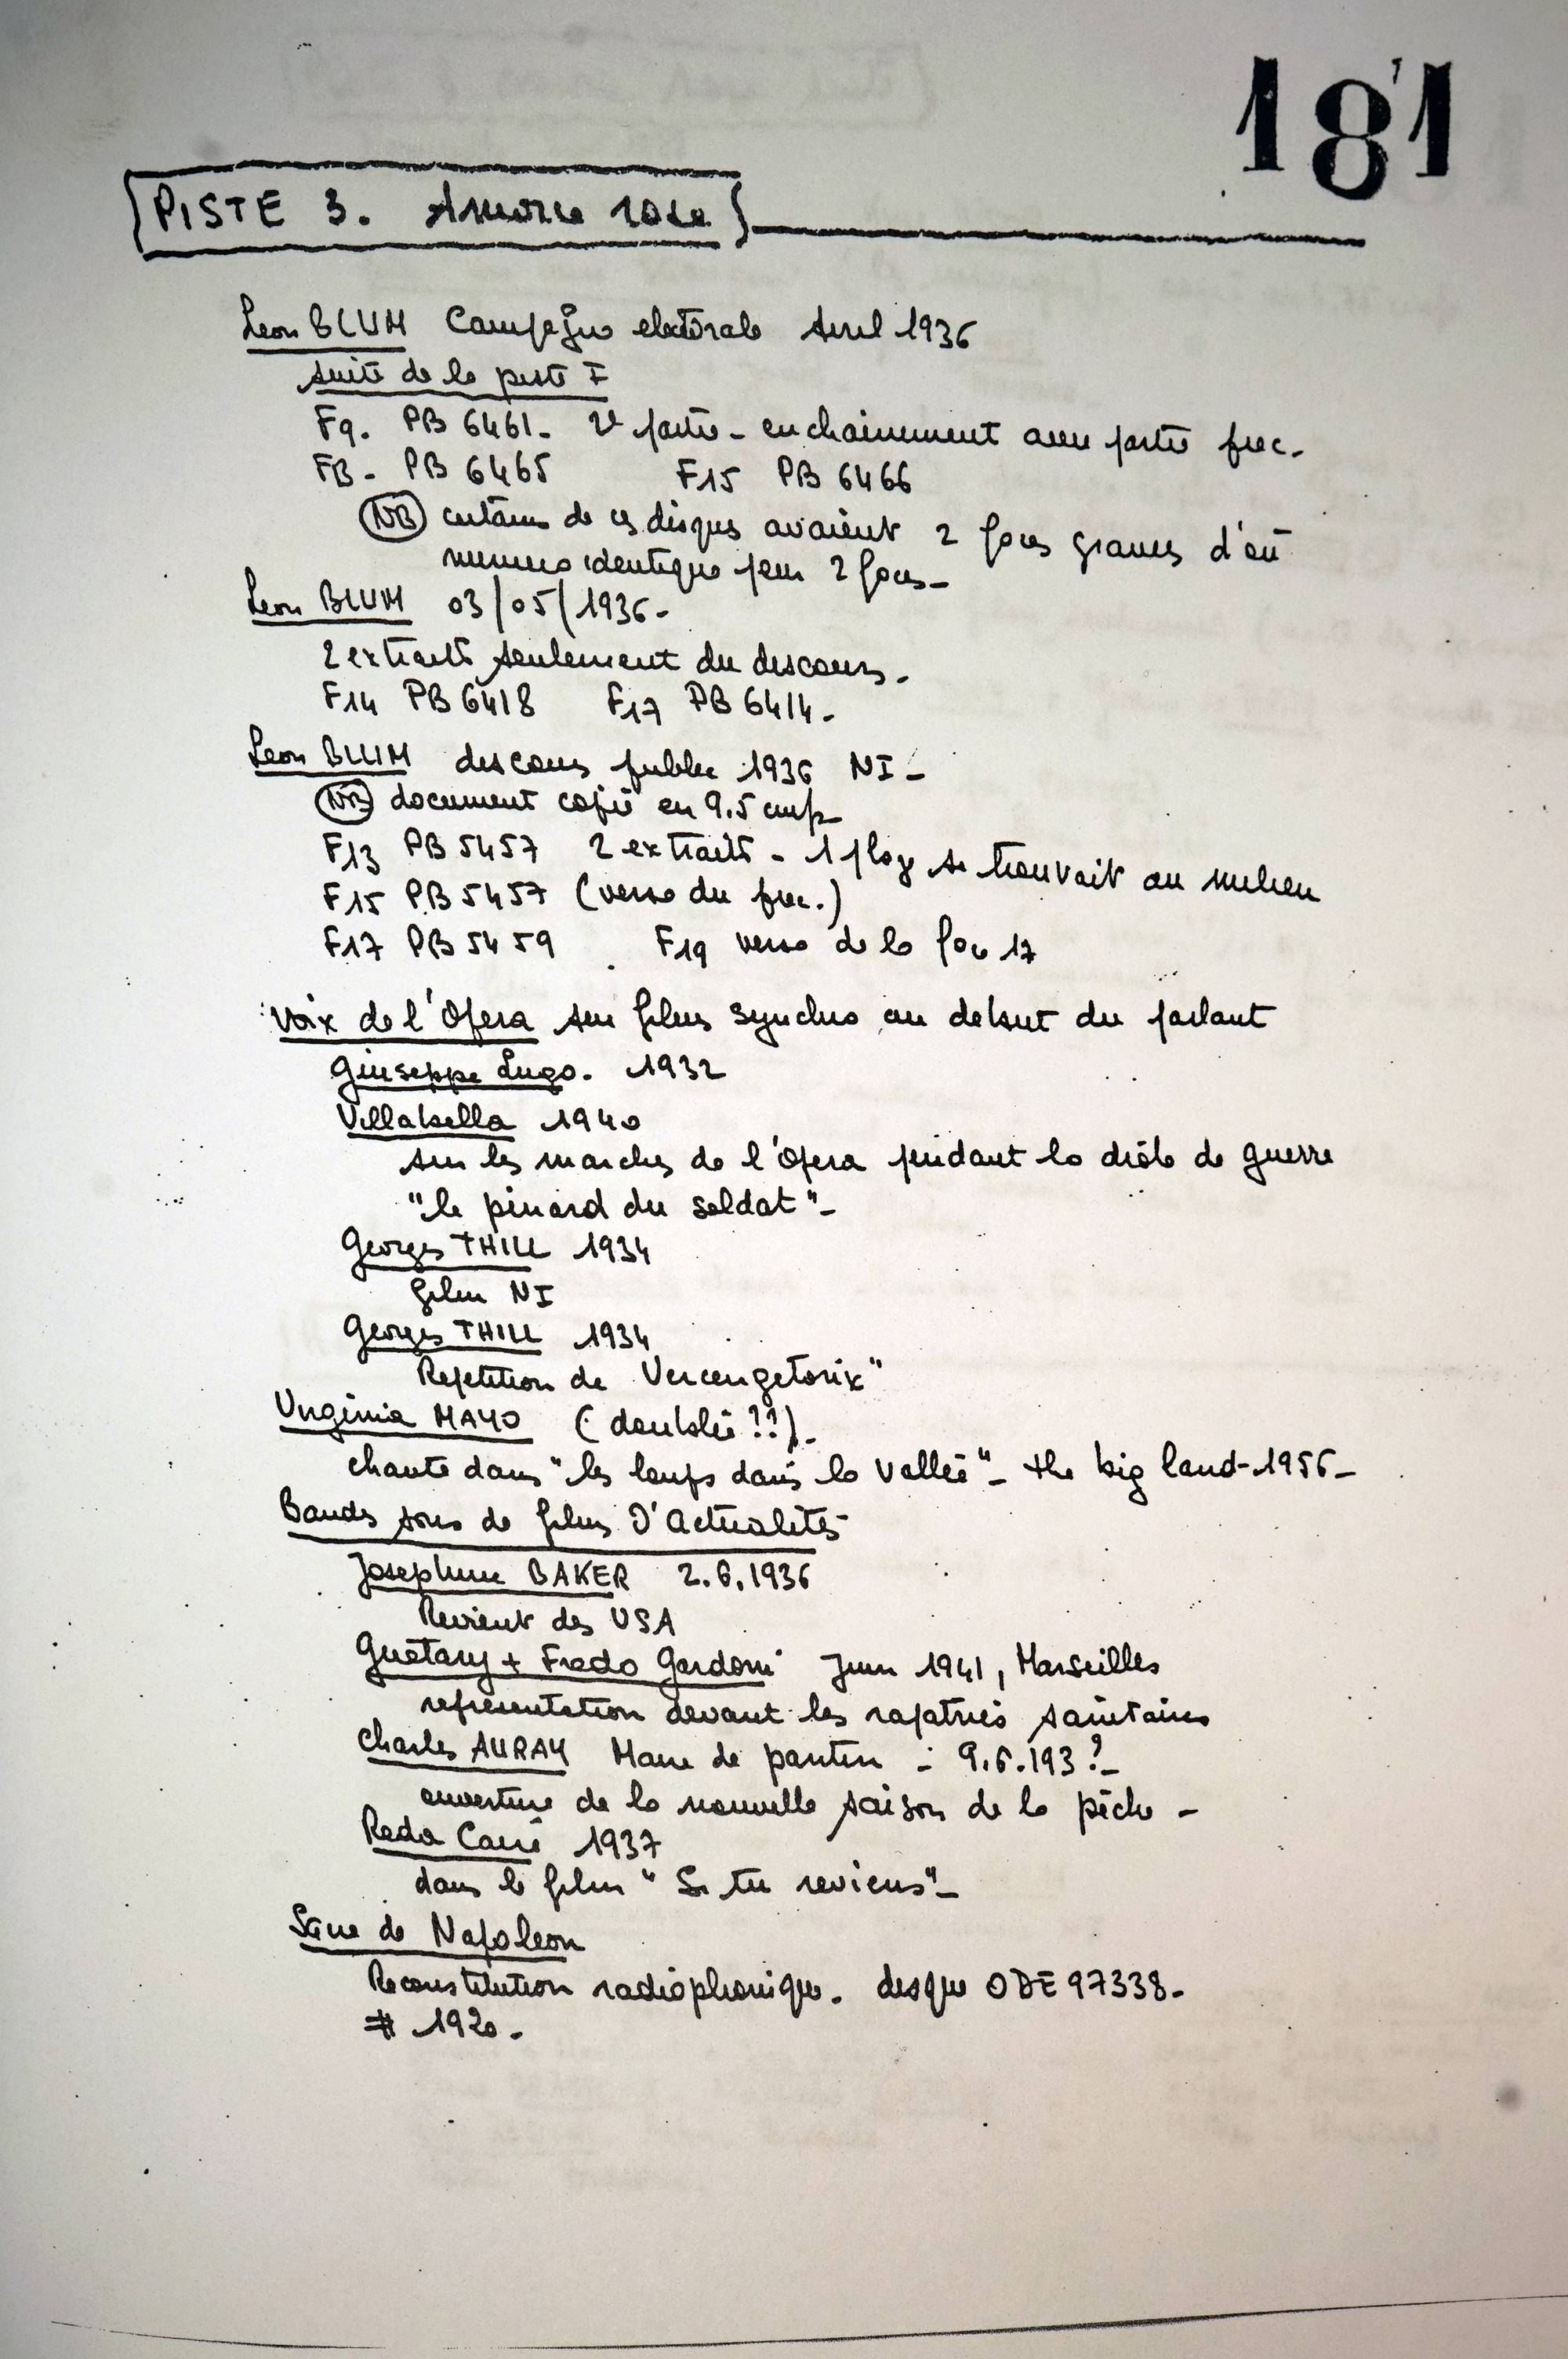 181
PISTE 3. Amorce rose
Leon BLUM Campagne electorale Avril 1936
suite de la piste I
F9. PB 6461- 2e partie - enchainement avec partie prec.
F13- PB 6465 F15 PB 6466
NB certains de ces disques avaient 2 faces gravées d'où
numero identique pour 2 faces-
Leon BLUM 03/05/1936-
2 extraits seulement du discours.
F14 PB 6418 F17 PB 6414-
Leon BLUM discours public 1936 NI-
NB document copié en 9.5 cmps
F13 PB 5457 2 extraits - 1 plage se trouvait au milieu
F15 PB 5457 (verso du prec.)
F17 PB 5459 F19 verso de la face 17
Voix de l'Opera sur films synchro au debut du parlant
Giuseppe Lugo. 1932
Villabella 1940
sur les marches de l'Opera pendant la drôle de guerre
"le pinard du soldat"-
Georges THILL 1934
film NI
Georges THILL 1934
Repetition de Vercengetorix"
Virginia MAYO (doublée ??)-
chante dans "les loups dans la vallée"- the big land-1956-
Bandes sons de films D'Actualités
Josephine BAKER 2.6.1936
Revient des USA
Guétary + Fredo Gardoni Juin 1941, Marseilles
representation devant les rapatriés sanitaires
Charles AURAY Maire de pantin - 9.6.193?-
ouverture de la nouvelle saison de la pêche -
Reda Caire 1937
dans le film "Si tu reviens"-
Sacre de Napoleon
Reconstitution radiophonique. disque ODE 97338-
# 1920-